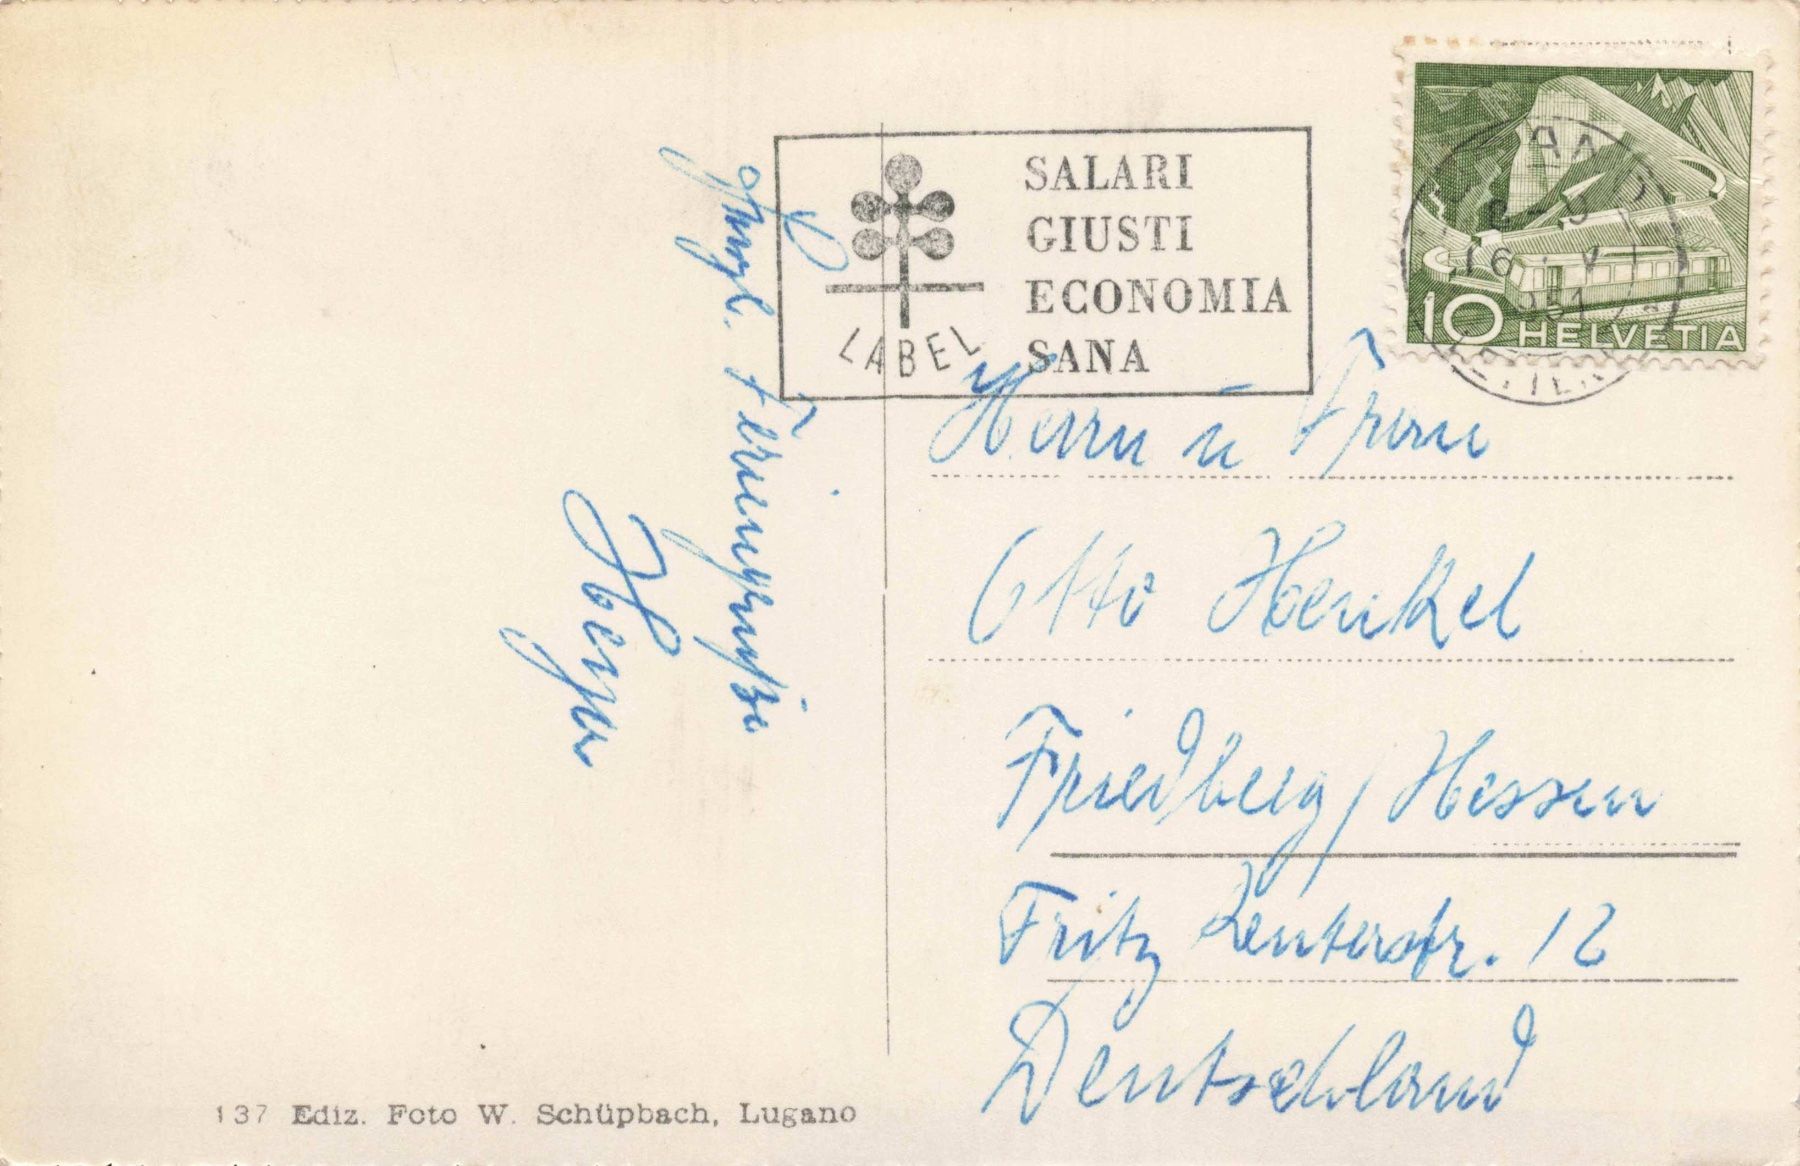 SALARI
GIUSTI
ECONOMIA
SANA
LABEL
10 HELVETIA
Herrn u Frau
Otto Henkel
Friedberg / Hessen
Fritz Reuterstr. 12
Deutschland
Feriengrüße
137 Ediz. Foto W. Schüpbach, Lugano